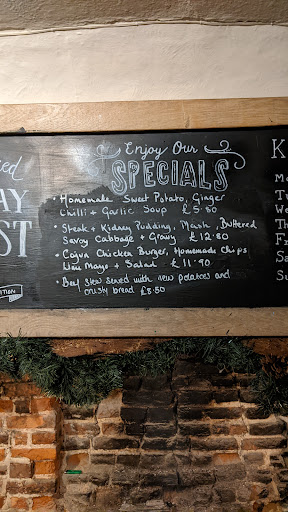 Enjoy Our
SPECIALS
• Homemade Sweet Potato, Ginger
Chilli + Garlic Soup £5.50
• Steak + Kidney Pudding, Mash, Buttered
Savoy Cabbage + Gravy £12.80
• Cajun Chicken Burger, Homemade Chips
Mayo + Salad £11.90
• Beef Stew served with new potatoes and
crusty bread £8.50
AY
ST
TION
K
M
T
W
Th
F
Sa
S